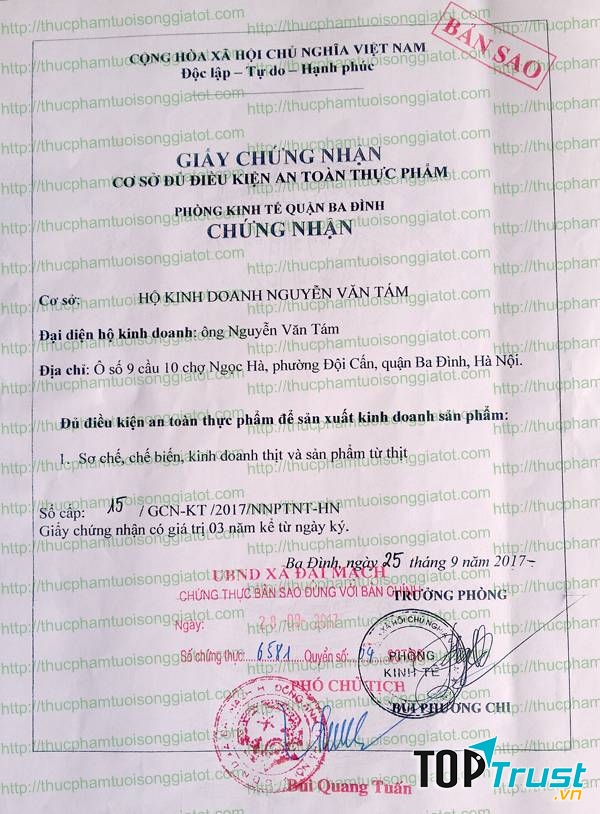 BẢN SAO
CỘNG HÒA XÃ HỘI CHỦ NGHĨA VIỆT NAM
Độc lập – Tự do – Hạnh phúc
GIẤY CHỨNG NHẬN
CƠ SỞ ĐỦ ĐIỀU KIỆN AN TOÀN THỰC PHẨM
PHÒNG KINH TẾ QUẬN BA ĐÌNH
CHỨNG NHẬN
Cơ sở: HỘ KINH DOANH NGUYỄN VĂN TÁM
Đại diện hộ kinh doanh: ông Nguyễn Văn Tám
Địa chỉ: Ô số 9 cầu 10 chợ Ngọc Hà, phường Đội Cấn, quận Ba Đình, Hà Nội.
Đủ điều kiện an toàn thực phẩm để sản xuất kinh doanh sản phẩm:
1. Sơ chế, chế biến, kinh doanh thịt và sản phẩm từ thịt
Số cấp: 15 / GCN-KT /2017/NNPTNT-HN
Giấy chứng nhận có giá trị 03 năm kể từ ngày ký.
Ba Đình, ngày 25 tháng 9 năm 2017
UBND XÃ ĐẠI MẠCH
CHỨNG THỰC BẢN SAO ĐÚNG VỚI BẢN CHÍNH
TRƯỞNG PHÒNG
Ngày:
Số chứng thực: 6581 Quyển số:
PHÒNG
KINH TẾ
PHÓ CHỦ TỊCH
BÙI PHƯƠNG CHI
Bùi Quang Tuấn
http://thucphamtuoisonggiatot.com
TOPTrust.vn